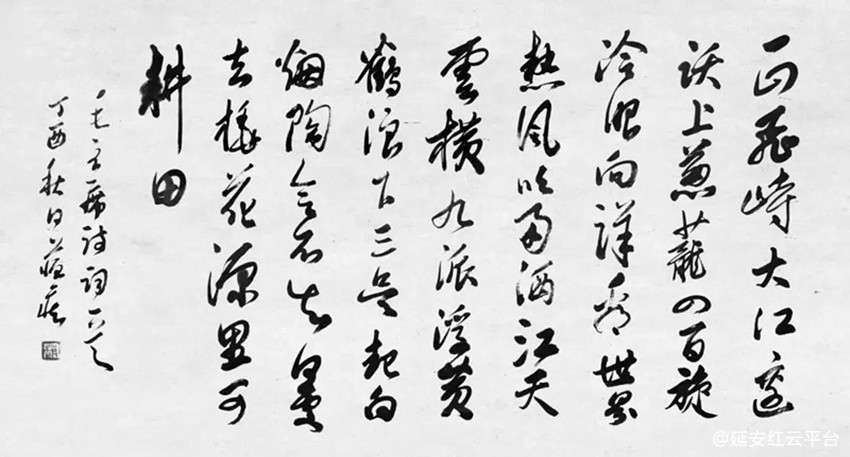 一山飛峙大江邊
跃上葱蘢四百旋
冷眼向洋看世界
热風吹雨洒江天
雲横九派浮黄
鶴浪下三吴起白
烟陶令不知何處
去桃花源里可
耕田
毛主席詩詞一首
丁酉秋日
@延安红云平台